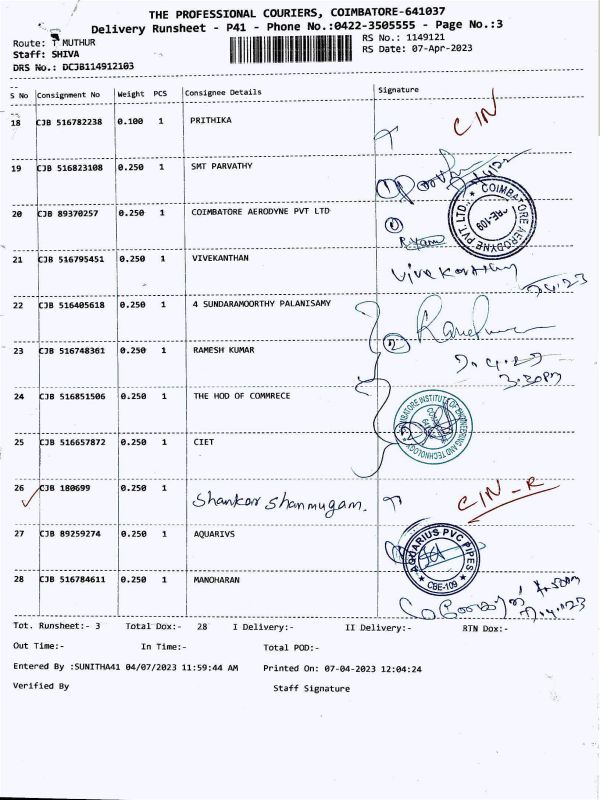 THE PROFESSIONAL COURIERS, COIMBATORE-641037
Delivery Runsheet - P41 - Phone No.:0422-3505555 - Page No.:3
Route: T MUTHUR
RS No.: 1149121
Staff: SHIVA
RS Date: 07-Apr-2023
DRS No.: DCJB114912103
S No Consignment No Weight PCS Consignee Details Signature
18 CJB 516782238 0.100 1 PRITHIKA CIN
19 CJB 516823108 0.250 1 SMT PARVATHY
20 CJB 89370257 0.250 1 COIMBATORE AERODYNE PVT LTD
COIMBATORE AERODYNE PVT LTD. * RE-109
21 CJB 516795451 0.250 1 VIVEKANTHAN
22 CJB 516405618 0.250 1 4 SUNDARAMOORTHY PALANISAMY
23 CJB 516748361 0.250 1 RAMESH KUMAR 2
3.30pm
24 CJB 516851506 0.250 1 THE HOD OF COMMRECE
COIMBATORE INSTITUTE OF ENGINEERING AND TECHNOLOGY
25 CJB 516657872 0.250 1 CIET
26 CJB 180699 0.250 1 Shankar Shanmugam. CIN-R
27 CJB 89259274 0.250 1 AQUARIVS
AQUARIUS PVC PIPES * CBE-109 *
28 CJB 516784611 0.250 1 MANOHARAN
Tot. Runsheet:- 3 Total Dox:- 28 I Delivery:- II Delivery:- RTN Dox:-
Out Time:- In Time:- Total POD:-
Entered By :SUNITHA41 04/07/2023 11:59:44 AM Printed On: 07-04-2023 12:04:24
Verified By Staff Signature